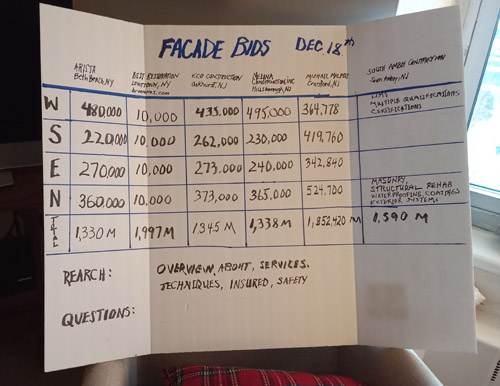 FACADE BIDS DEC. 18th
ARISTA
Beth Beach, NY
BEST RESTORATION
ECO CONSTRUCTION
Oakhurst, NJ
Hillsborough, NJ
Cranford, NJ
SOUTH AMBOY CONSTRUCTION
South Amboy, NJ
W 480,000 10,000 435,000 495,000 364,778 LISTS
MULTIPLE QUALIFICATIONS
CERTIFICATIONS
S 220,000 10,000 262,000 230,000 419,760
E 270,000 10,000 273,000 240,000 342,840
N 360,000 10,000 373,000 365,000 524,700 MASONRY,
STRUCTURAL REHAB
WATERPROOFING, COATINGS
EXTERIOR SYSTEMS
TOTAL 1,330 M 1,997 M 1345 M 1,338 M 1,852,420 M 1,590 M
REARCH: OVERVIEW, ABOUT, SERVICES.
TECHNIQUES, INSURED, SAFETY
QUESTIONS: